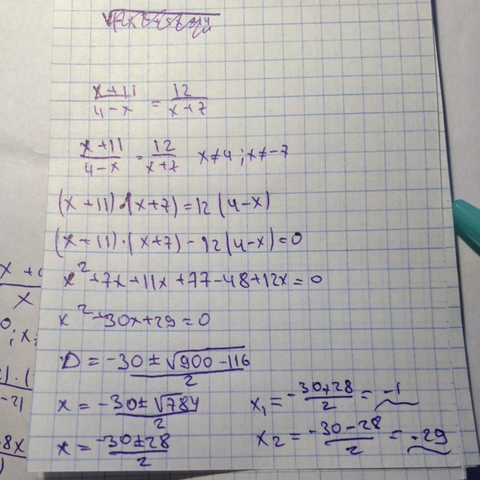 x+11/4-x = 12/x+7
x+11/4-x = 12/x+7 x≠4; x≠-7
(x+11)·(x+7)=12(4-x)
(x+11)·(x+7)-12(4-x)=0
x²+7x+11x+77-48+12x=0
x²+30x+29=0
D=-30±√900-116/2
x=-30±√784/2
x=-30±28/2
x₁=-30+28/2=-1
x₂=-30-28/2=-29